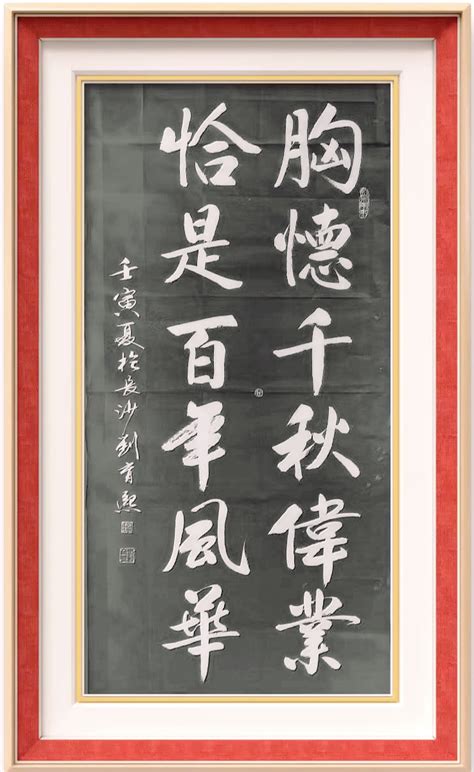 胸懷千秋偉業
恰是百年風華
壬寅夏於長沙劉育熙